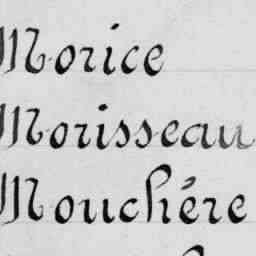 Morice
Morisseau
Mouchére